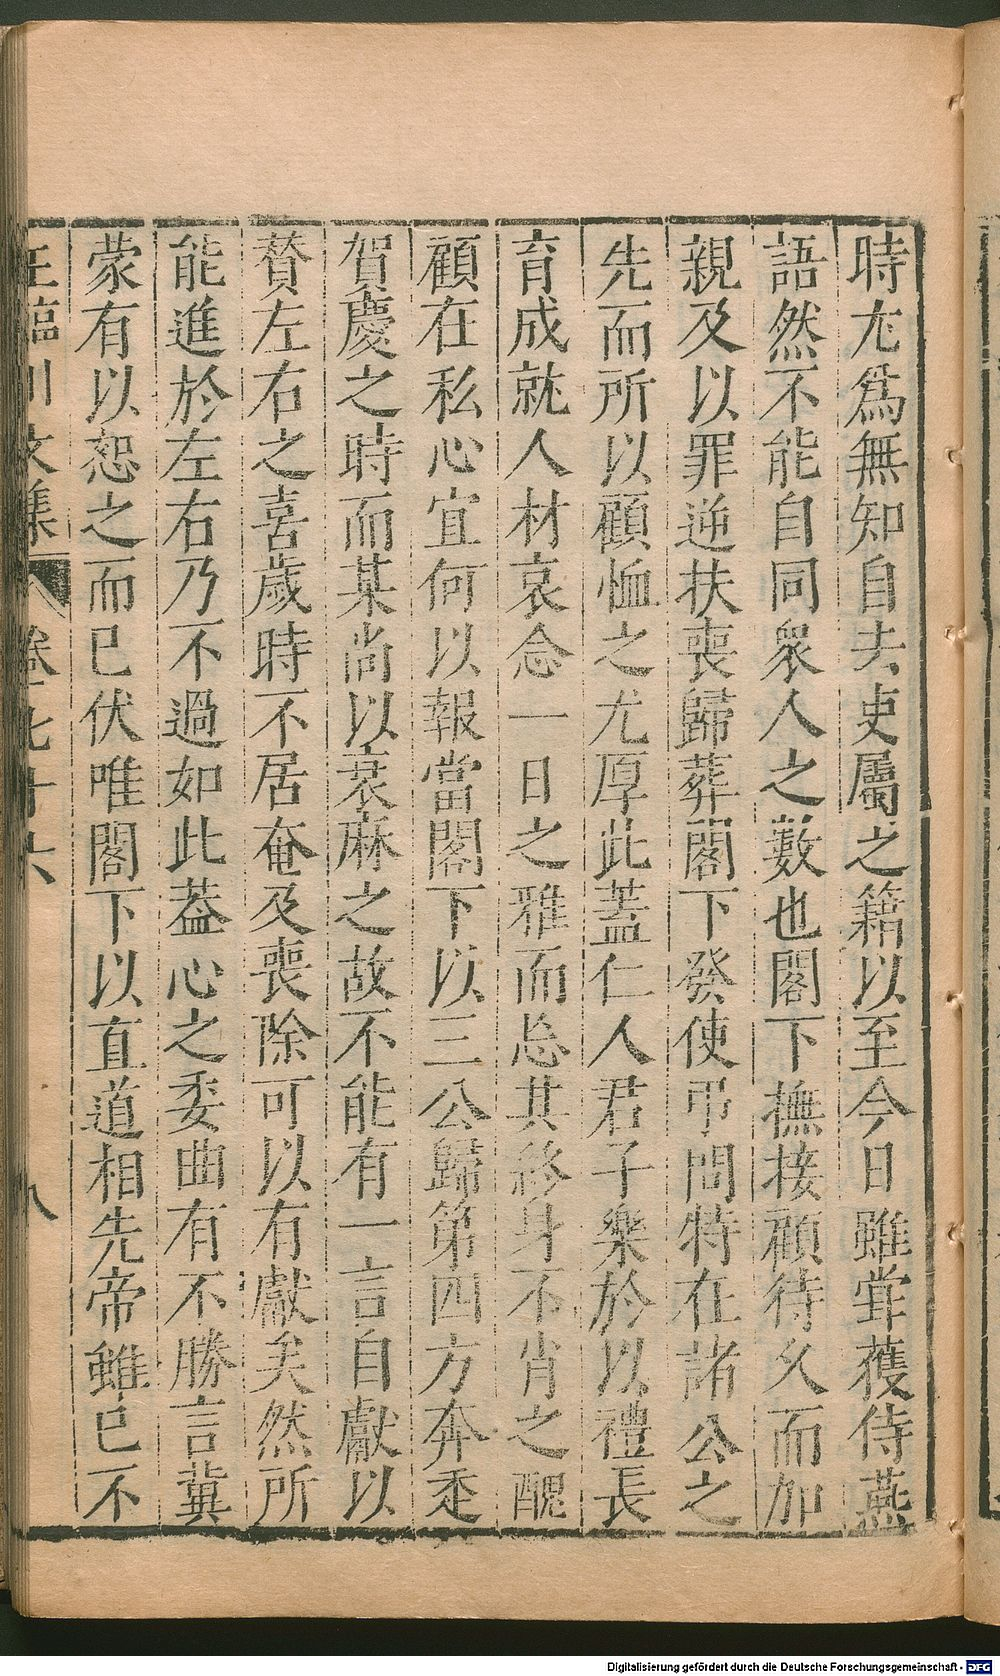 時尤爲無知自去吏屬之籍以至今日雖甞獲侍燕
語然不能自同衆人之數也閣下撫接顧待久而加
親及以罪逆扶喪歸葬閣下發使弔問特在諸公之
先而所以顧恤之尤厚此蓋仁人君子樂於以禮長
育成就人材哀念一日之雅而忘其終身不肖之醜
顧在私心宜何以報當閣下以三公歸第四方奔走
賀慶之時而某尚以衰麻之故不能有一言自獻以
賛左右之喜歲時不居奄及喪除可以有獻矣然所
能進於左右乃不過如此葢心之委曲有不勝言冀
蒙有以恕之而已伏唯閣下以直道相先帝雖已不
王臨川文集 卷七十六 八
Digitalisierung gefördert durch die Deutsche Forschungsgemeinschaft - DFG